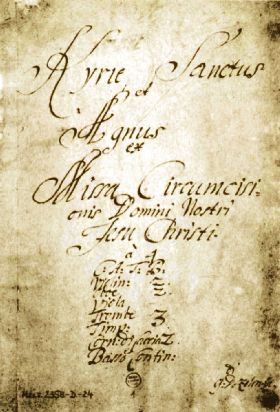 Kyrie Sanctus
et
Agnus
ex
Missa Circumcisi-
onis Domini Nostri
Jesu Christi.
à 4
C. A. T. B.
Violin: 2
Viola
Trombe
Timp: 3
Basso Contin:
Mus. 2358-D-24